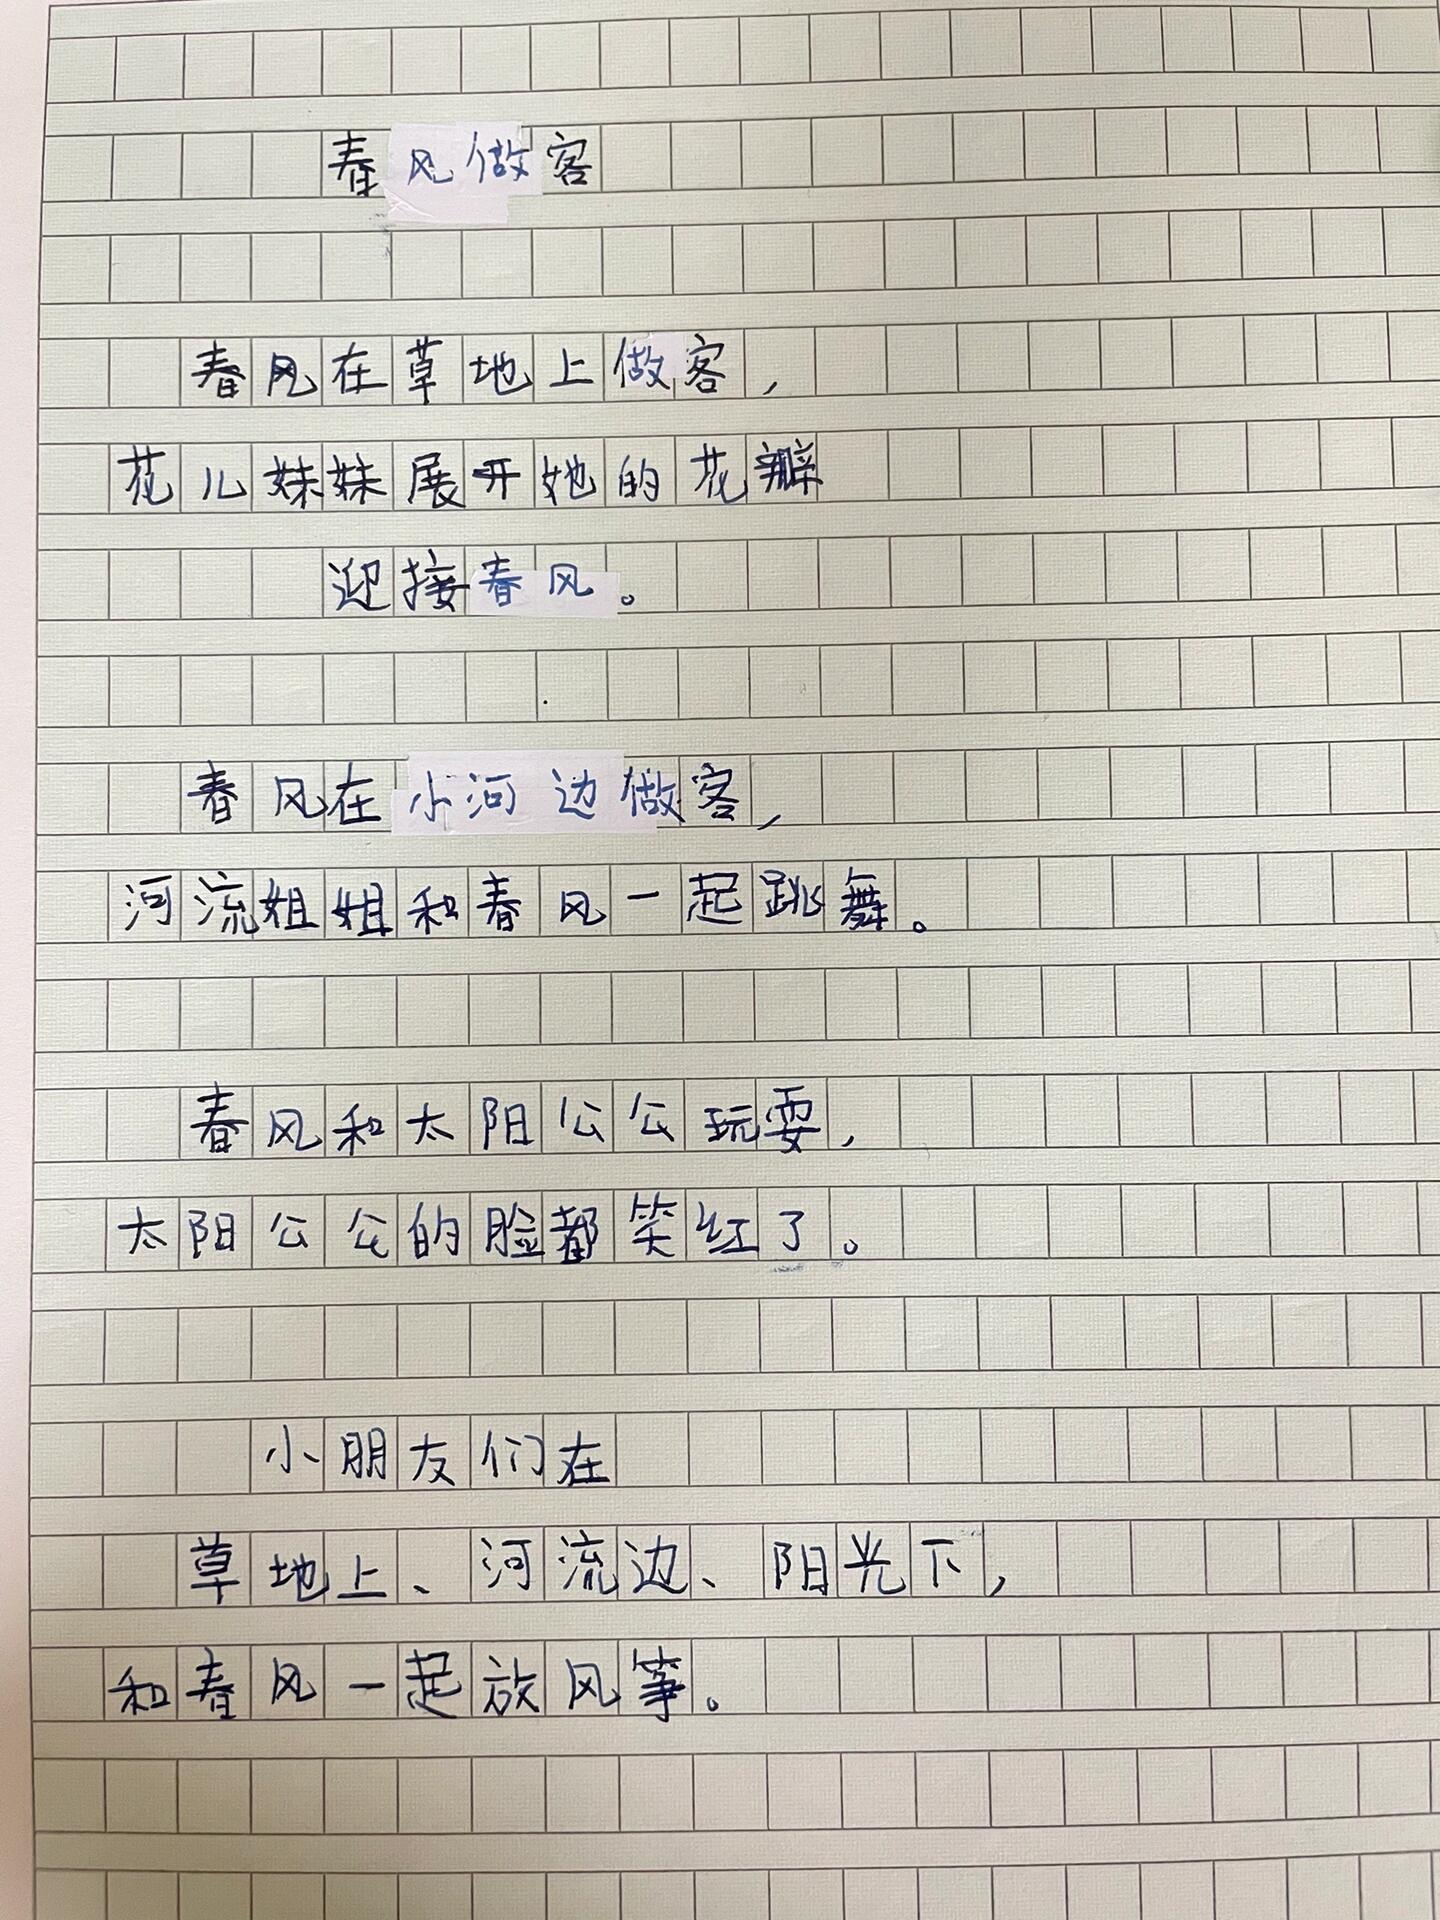 春风做客
春风在草地上做客，
花儿妹妹展开她的花瓣
迎接春风。
春风在小河边做客，
河流姐姐和春风一起跳舞。
春风和太阳公公玩耍，
太阳公公的脸都笑红了。
小朋友们在
草地上、河流边、阳光下，
和春风一起放风筝。